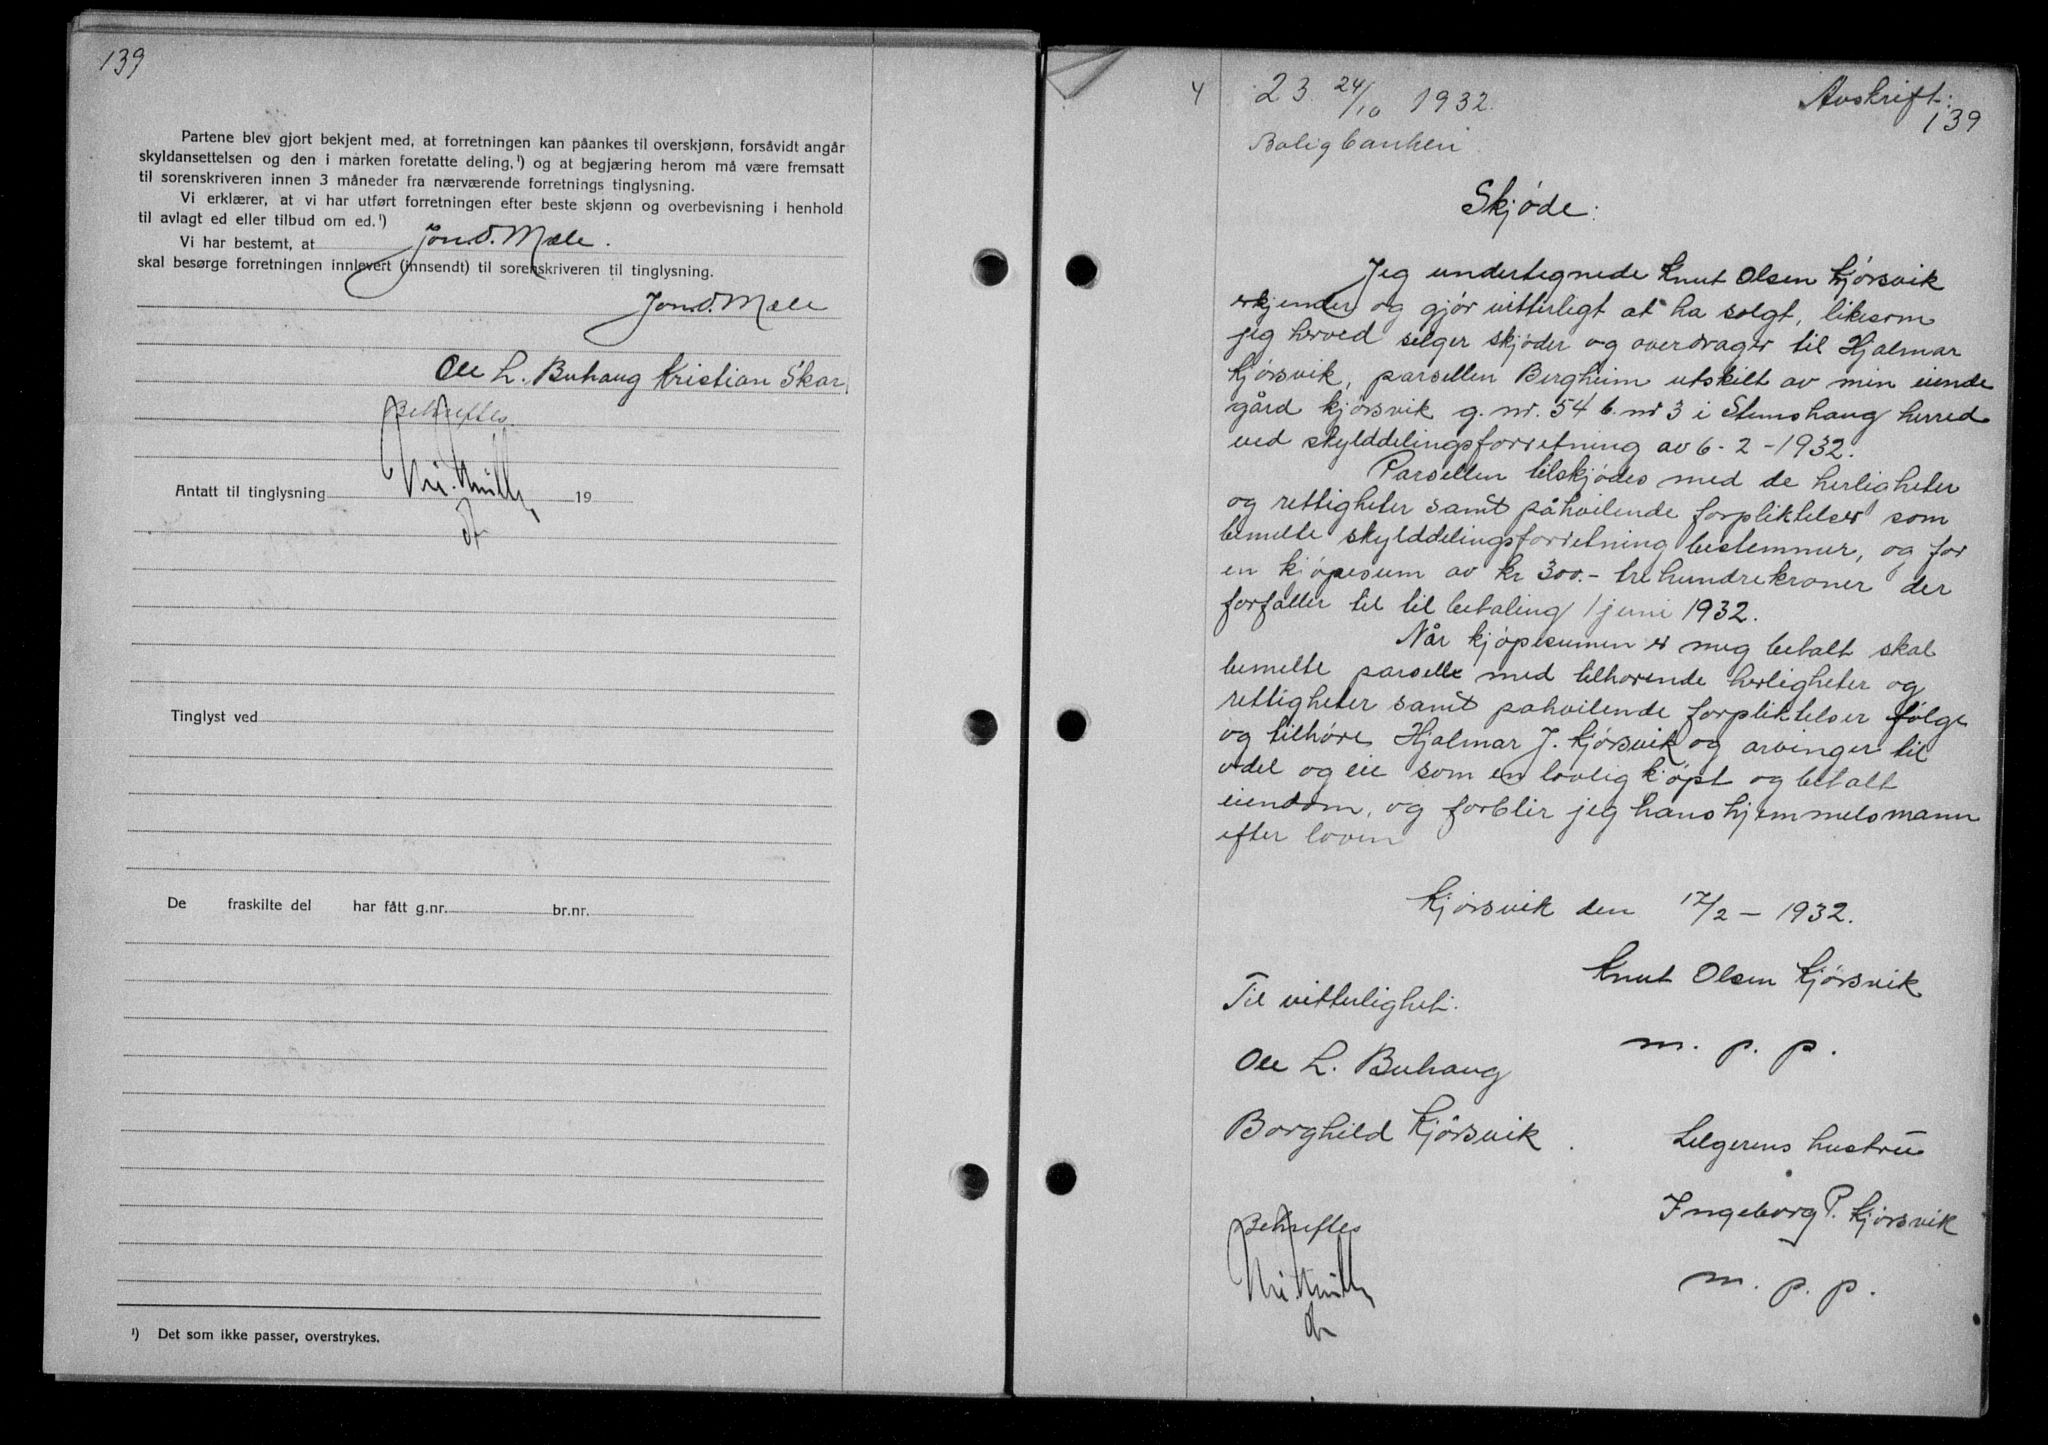 139
Partene blev gjort bekjent med, at forretningen kan påankes til overskjønn, forsåvidt angår
skyldansettelsen og den i marken foretatte deling,¹) og at begjæring herom må være fremsatt
til sorenskriveren innen 3 måneder fra nærværende forretnings tinglysning.
Vi erklærer, at vi har utført forretningen efter beste skjønn og overbevisning i henhold
til avlagt ed eller tilbud om ed.¹)
Vi har bestemt, at Jon O. Mæle.
skal besørge forretningen innlevert (innsendt) til sorenskriveren til tinglysning.
Jon O. Mæle
Ole L. Buhaug Kristian Skar.
Bekreftes.
Antatt til tinglysning 19
Tinglyst ved
De fraskilte del har fått g.nr. br.nr.
¹) Det som ikke passer, overstrykes.
4 23 24/10 1932. Avskrift:
139
Boligbanken
Skjøde:
Jeg undertegnede Knut Olsen Kjørsvik
erkjender og gjør vitterligt at ha solgt, likesom
jeg herved selger skjøder og overdrager til Hjalmar
Kjørsvik, parsellen Bergheim utskilt av min eiende
gård Kjørsvik g. nr. 54 b. nr 3 i Stemshaug herred
ved skylddelingsforretning av 6-2-1932.
Parsellen tilskjødes med de herligheter
og rettigheter samt påhvilende forpliktelser som
bemelte skylddelingsforretning bestemmer, og for
en kjøpesum av kr 300.- trehundrekroner der
forfaller til til betaling 1 juni 1932.
Når kjøpesumen er meg betalt skal
bemelte parselle med tilhørende herligheter og
rettigheter samt pahvilende forpliktelser følge
og tilhøre Hjalmar J. Kjørsvik og arvinger til
odel og eie som en lovlig kjøpt og betalt
eiendom, og forblir jeg hans hjemmelsmann
efter loven
Kjørsvik den 17/2 - 1932.
Knut Olsen Kjørsvik
m. p. p.
Til vitterlighet:
Ole L. Buhaug
Borghild Kjørsvik.
Selgerens hustru
Ingeborg P. Kjørsvik
m. p. p.
Bekreftes